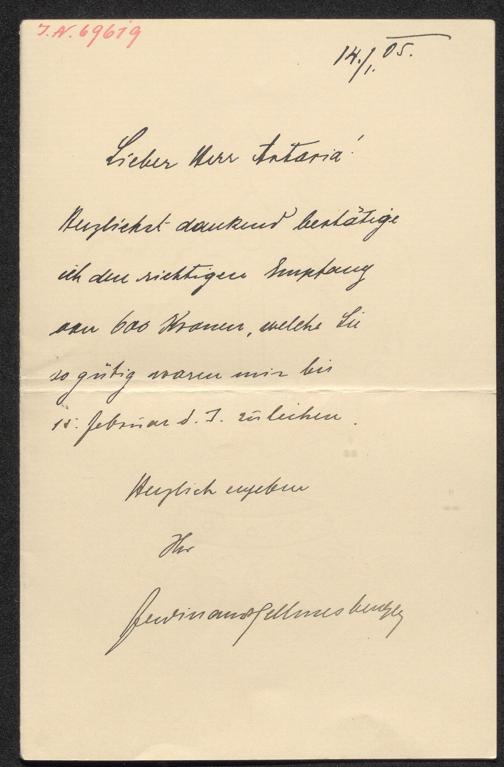 J.N. 69619
14./I. 05.
Lieber Herr Artaria!
Herzlichst dankend bestätige
ich den richtigen Empfang
von 600 Kronen, welche Sie
so gütig waren mir bis
15. Februar d. J. zu leihen.
Herzlich ergeben
Ihr
Ferdinand Hellmesberger